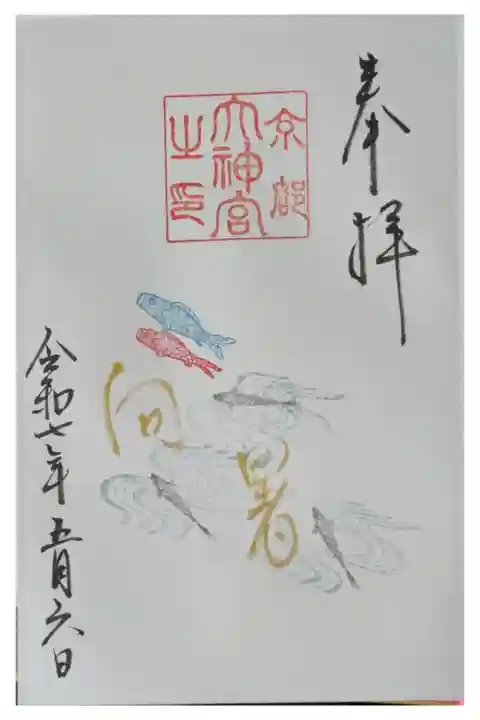 奉拝
京都
大神宮
之印
向暑
令和七年五月六日